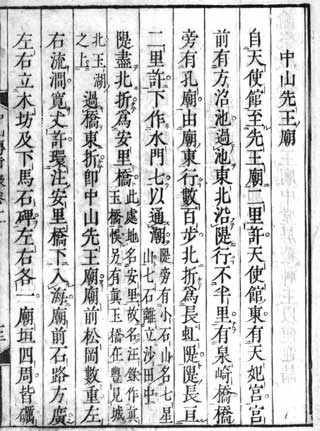 中山先王廟
自天使館至先王廟二里許天使館東有天妃宮宮
前有方沼池過池東北沿隄行不半里有泉崎橋橋
旁有孔廟由廟東行數百步北折爲長虹隄隄長亘
二里許下作水門七以通潮隄旁有小石山名七星山七石離立沙田中
隄盡北折爲安里橋此處地名安里故名汪錄作眞玉橋悞另有眞玉橋在豐見城
北玉湖之上過橋東折卽中山先王廟廟前松岡數重左
右流澗寬丈許環注安里橋下入海廟前石路方廣
左右立木坊及下馬石碑左右各一廟垣四周皆礪